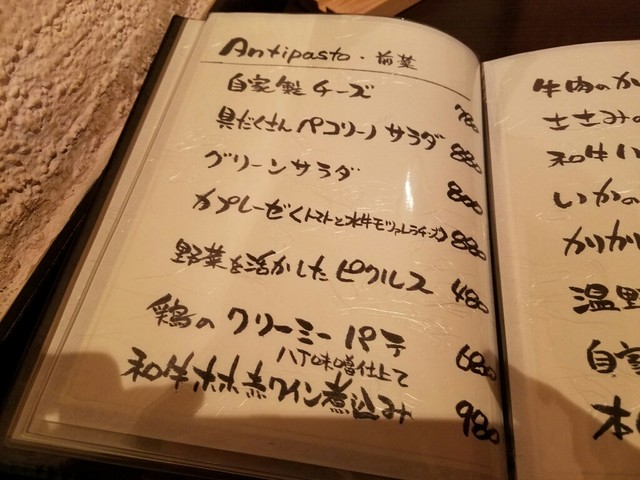 Antipasto・前菜
自家製チーズ 780
具だくさんペコリーノサラダ 880
グリーンサラダ 800
カプレーゼ(トマトと水牛モツァレラチーズ) 880
野菜を活かしたピクルス 480
鶏のクリーミーパテ 680
八丁味噌仕上て
和牛ホホ赤ワイン煮込み 980
牛肉のか
ささみの
和牛ハ
いかの
かりかり
温野
自家
本